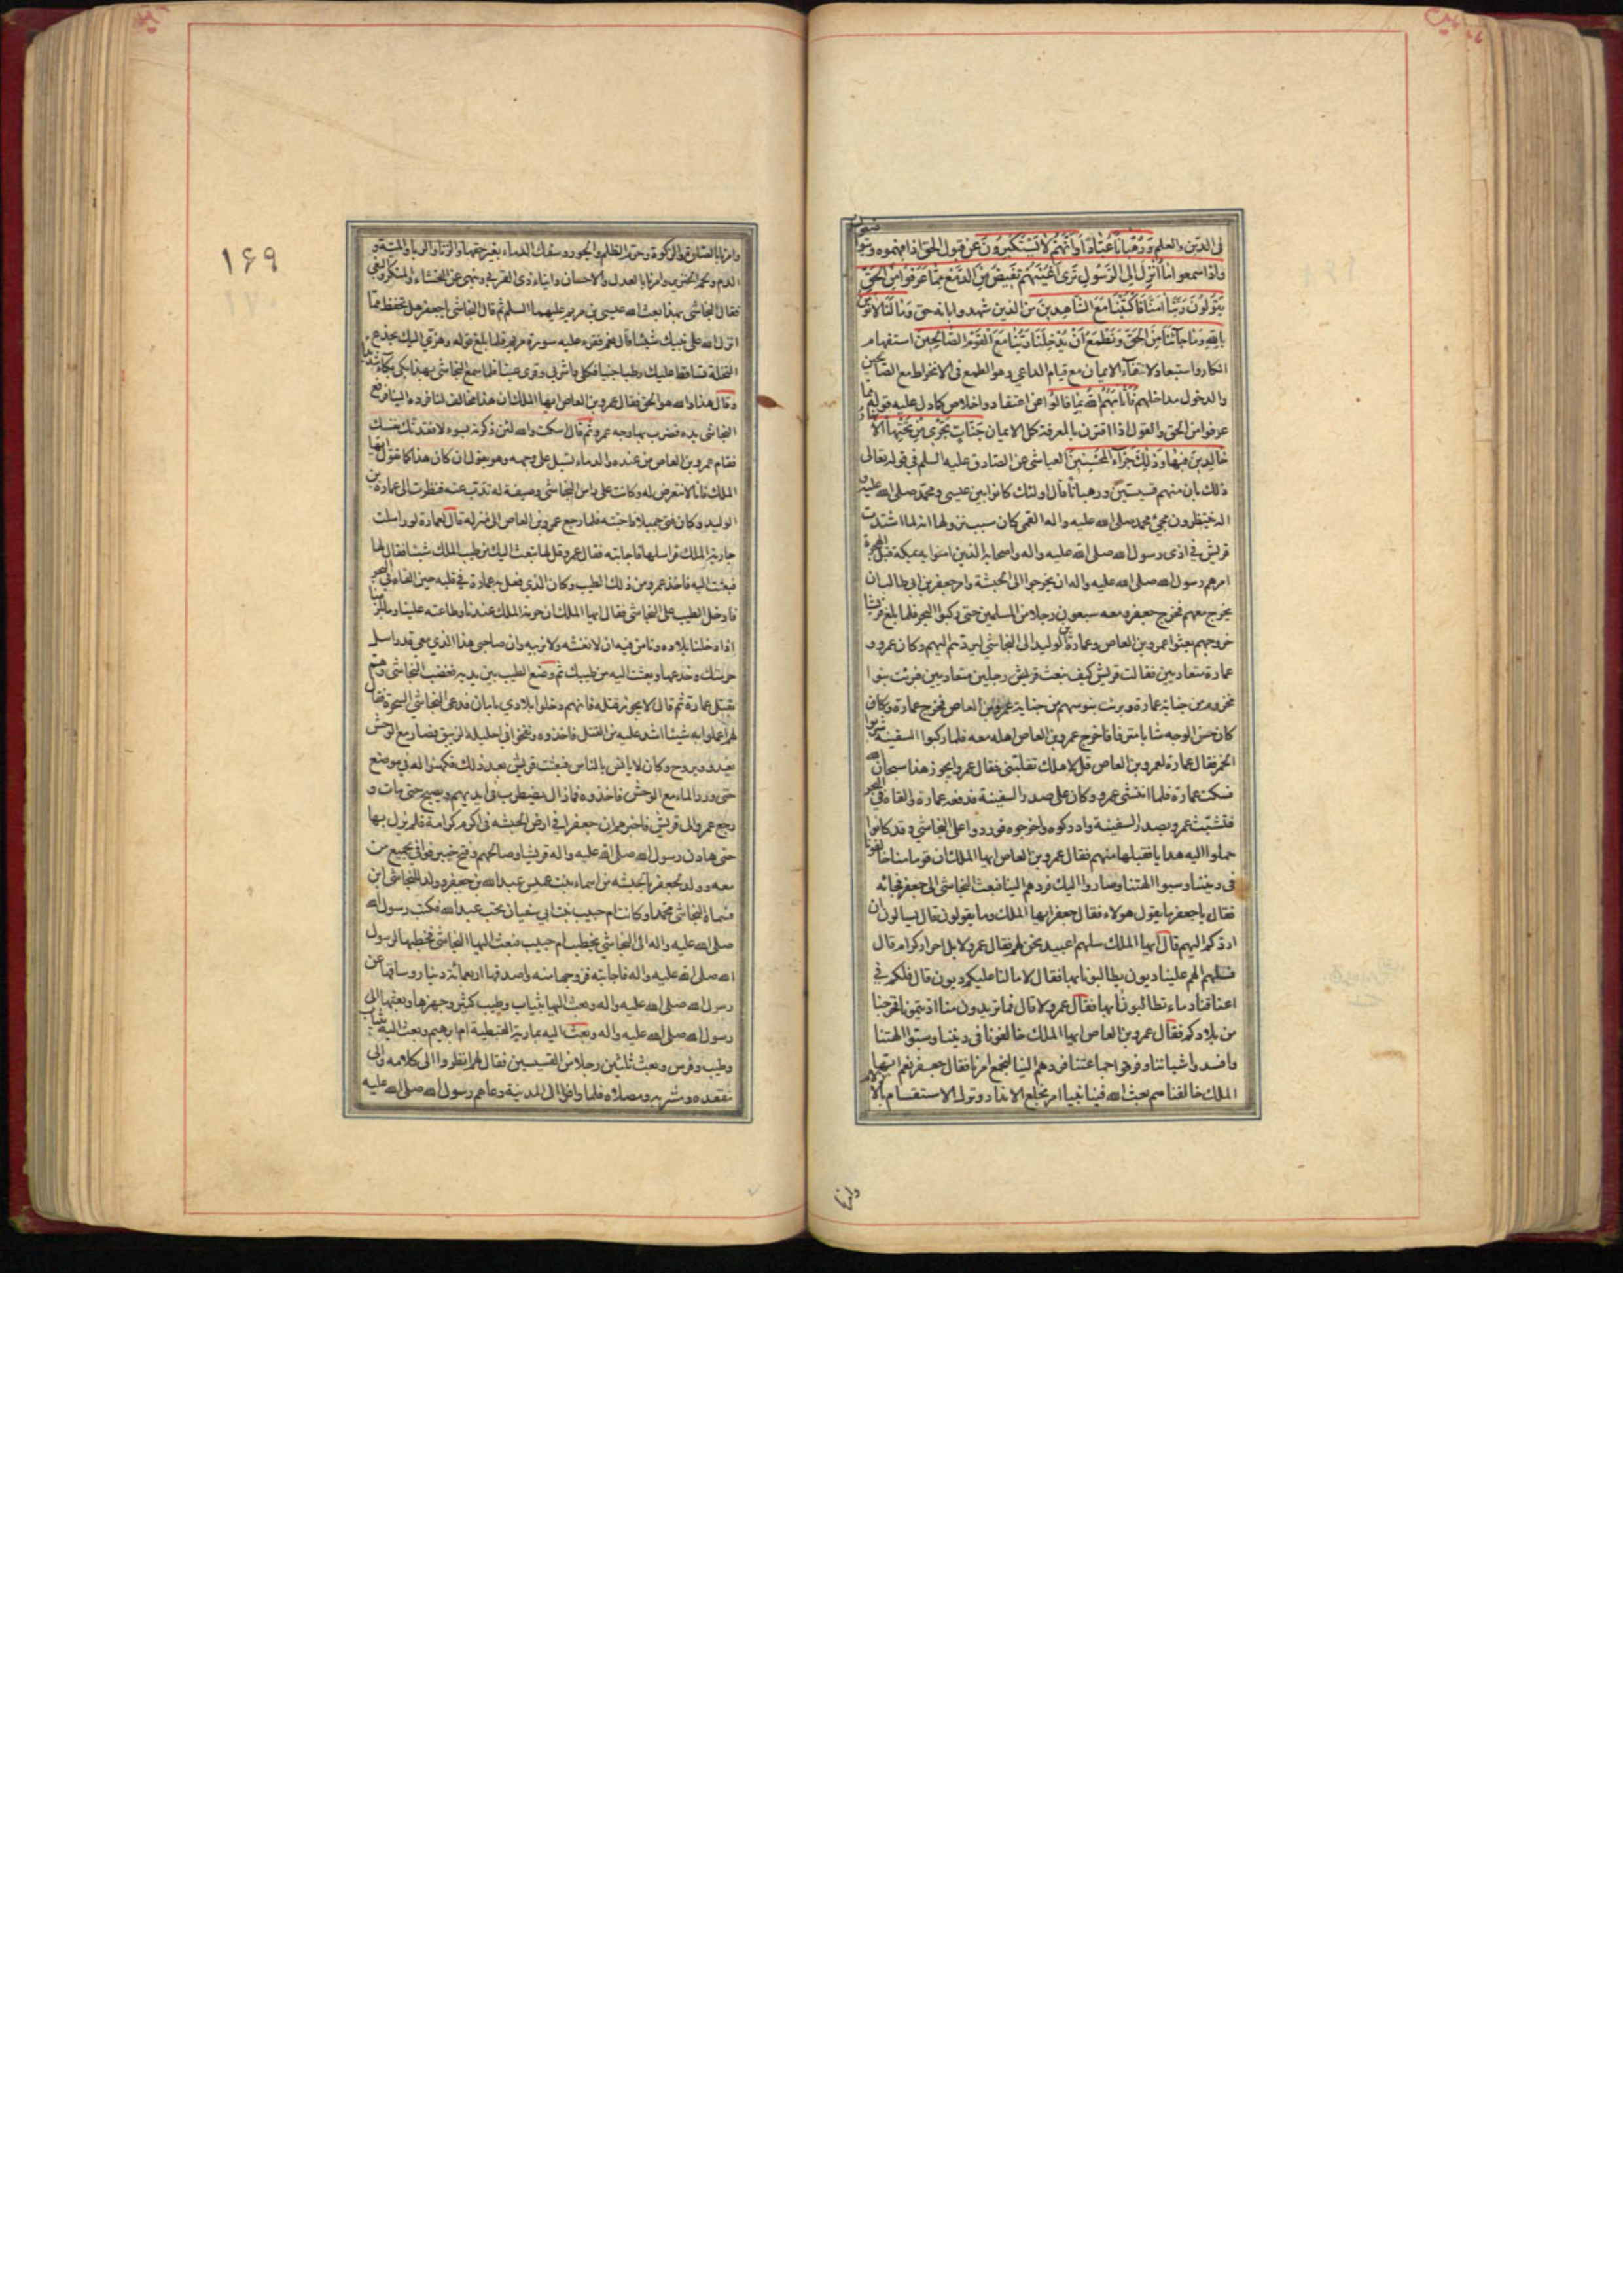 فى الدين والعلم وَرُهْبَانًا عُبّادًا وَأَنَّهُمْ لَا يَسْتَكْبِرُونَ عن قبول الحق اذا فهموه ويتواضعون
وَاذا سمعوا مَا أُنْزِلَ إِلَى الرَّسُولِ تَرَى أَعْيُنَهُمْ تَفِيضُ مِنَ الدَّمْعِ مِمَّا عَرَفُوا مِنَ الْحَقِّ
يَقُولُونَ رَبَّنَا آمَنَّا فَاكْتُبْنَا مَعَ الشَّاهِدِينَ من الذين شهدوا بانه حق وَمَا لَنَا لَا نُؤْمِنُ
بِاللهِ وَمَا جَاءَنَا مِنَ الْحَقِّ وَنَطْمَعُ أَنْ يُدْخِلَنَا رَبُّنَا مَعَ الْقَوْمِ الصَّالِحِينَ استفهام
انكار واستبعاد لانتفاء الايمان مع قيام الداعى وهو الطمع فى الانخراط مع الصالحين
والدخول مداخلهم فَأَثَابَهُمُ اللهُ بِمَا قَالُوا عن اعتقاد واخلاص كما دل عليه قوله مما
عرفوا من الحق والقول اذا اقترن بالمعرفة كمل الايمان جَنَّاتٍ تَجْرِي مِنْ تَحْتِهَا الْأَنْهَارُ
خَالِدِينَ فِيهَا وَذَلِكَ جَزَاءُ الْمُحْسِنِينَ العياشى عن الصادق عليه السلم فى قوله تعالى
ذلك بان منهم قسيسين ورهبانا قال اولئك كانوا بين عيسى ومحمد صلى الله عليهما
اله ينتظرون مجئ محمد صلى الله عليه واله القمى كان سبب نزولها انه لما اشتدت
قريش فى اذى رسول الله صلى الله عليه واله واصحابه الذين امنوا به بمكة قبل الهجرة
امرهم رسول الله صلى الله عليه واله ان يخرجوا الى الحبشة وامر جعفر بن ابى طالب ان
يخرج معهم فخرج جعفر ومعه سبعون رجلا من المسلمين حتى ركبوا البحر فلما بلغ قريشا
خروجهم بعثوا عمرو بن العاص وعمارة بن الوليد الى النجاشى ليردهم اليهم وكان عمرو و
عمارة متعاديين فقالت قريش كيف نبعث رجلين متعاديين فبرئت بنوا
مخزوم من جناية عمارة وبرئت بنو سهم من جناية عمرو بن العاص فخرج عمارة وكان
كان حسن الوجه شابا مترفا فاخرج عمرو بن العاص اهله معه فلما ركبوا السفينة شربوا
الخمر فقال عمارة لعمرو بن العاص قل لاهلك تقبلنى فقال عمرو ايجوز هذا سبحان الله
فسكت عمارة فلما انتشى عمرو وكان على صدر السفينة فدفعه عمارة والقاه فى البحر
فتشبث عمرو بصدر السفينة وادركوه واخرجوه فوردوا على النجاشى وقد كانوا
حملوا اليه هدايا فقبلها منهم فقال عمرو بن العاص ايها الملك ان قوما منا خالفونا
فى ديننا وسبوا الهتنا وصاروا اليك فردهم الينا فبعث النجاشى الى جعفر فجائه
فقال يا جعفر ما يقول هؤلاء فقال جعفر ايها الملك وما يقولون قال يسألون ان
اردكم اليهم قال ايها الملك سلهم اعبيد نحن لهم فقال عمرو لا بل احرار كرام قال
فسلهم الهم علينا ديون يطالبونا بها فقال لا ما لنا عليكم ديون قال فلكم فى
اعناقنا دماء تطالبونا بها فقال عمرو لا قال فما تريدون منا اذيتمونا فخرجنا
من بلادكم فقال عمرو بن العاص ايها الملك خالفونا فى ديننا وسبوا الهتنا
وافسدوا شباننا وفرقوا جماعتنا فردهم الينا لنجمع امرنا فقال جعفر نعم ايها
الملك خالفناهم بعث الله فينا نبيا امر بخلع الانداد وترك الاستقسام بالازلام
وامرنا
۱۶۹
وامرنا بالصلوة والزكوة وحرم الظلم والجور وسفك الدماء بغير حقها والزنا والربا والميتة و
الدم ولحم الخنزير وامرنا بالعدل والاحسان وايتاء ذى القربى وينهى عن الفحشاء والمنكر والبغى
فقال النجاشى بهذا بعث الله عيسى بن مريم عليهما السلم ثم قال النجاشى يا جعفر هل تحفظ مما
انزل الله على نبيك شيئا قال نعم فقرء عليه سورة مريم فلما بلغ قوله وهزى اليك بجذع
النخلة تساقط عليك رطبا جنيا فكلى واشربى وقرى عينا فلما سمع النجاشى بهذا بكى بكاء شديدا
وقال هذا والله هو الحق فقال عمرو بن العاص ايها الملك ان هذا مخالف لنا فرده الينا فرفع
النجاشى يده فضرب بها وجه عمرو ثم قال اسكت والله لئن ذكرته بسوء لافقدنك نفسك
فقام عمرو بن العاص من عنده والدماء تسيل على وجهه وهو يقول ان كان هذا كما تقول ايها
الملك فانا لا نتعرض له وكانت على راس النجاشى وصيفة له تذب عنه فنظرت الى عمارة بن
الوليد وكان فتى جميلا فاحبته فلما رجع عمرو بن العاص الى منزله قال لعمارة لو راسلت
جارية الملك فراسلها فاجابته فقال عمرو قل لها تبعث اليك من طيب الملك شيئا فقال لها
فبعثت اليه فاخذ عمرو من ذلك الطيب وكان الذى فعل به عمارة فى قلبه حين القاه فى البحر
فادخل الطيب على النجاشى فقال ايها الملك ان حرمة الملك عندنا وطاعته علينا وما يلزمنا
اذا دخلنا بلاده ونامن فيه ان لا نغشه ولا نريبه وان صاحبى هذا الذى معى قد راسل
حرمتك وخدعها وبعثت اليه من طيبك ثم وضع الطيب بين يديه فغضب النجاشى وهم
بقتل عمارة ثم قال لا يجوز قتله فانهم دخلوا بلادى بامان فدعى النجاشى السحرة فقال
لهم اعملوا به شيئا اشد عليه من القتل فاخذوه ونفخوا فى احليله الزيبق فصار مع الوحش
يغدو ويروح وكان لا يانس بالناس فبعثت قريش بعد ذلك فكمنوا له فى موضع
حتى ورد الماء مع الوحش فاخذوه فما زال يضطرب فى ايديهم ويصيح حتى مات و
رجع عمرو الى قريش فاخبرهم ان جعفرا فى ارض الحبشه فى اكرم كرامة فلم يزل بها
حتى هادن رسول الله صلى الله عليه واله قريشا وصالحهم وفتح خيبر فوافى بجميع من
معه وولد لجعفر بالحبشه من اسماء بنت عميس عبد الله بن جعفر وولد للنجاشى ابن
فسماه النجاشى محمدا وكانت ام حبيب بنت ابى سفيان تحت عبد الله فكتب رسول الله
صلى الله عليه واله الى النجاشى يخطب ام حبيب فبعث اليها النجاشى فخطبها لرسول
الله صلى الله عليه واله فاجابته فزوجها منه واصدقها اربعمائة دينار وساقها عن
رسول الله صلى الله عليه واله وبعث اليها بثياب وطيب كثير وجهزها وبعثها الى
رسول الله صلى الله عليه واله وبعث اليه بمارية القبطية ام ابرهيم وبعث اليه بثياب
وطيب وفرس وبعث ثلثين رجلا من القسيسين فقال لهم انظروا الى كلامه والى
مقعده ومشربه ومصلاه فلما وافوا الى المدينة دعاهم رسول الله صلى الله عليه